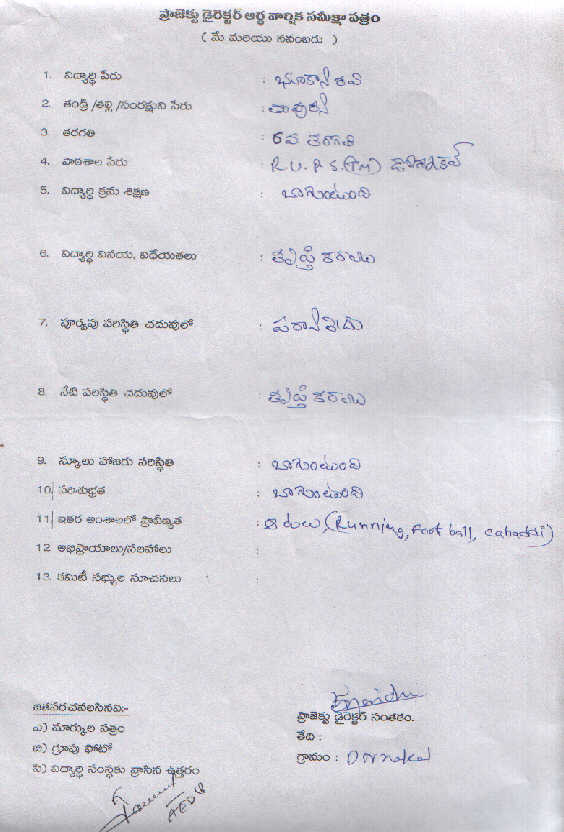 ప్రాజెక్టు డైరెక్టర్ అర్థ వార్షిక సమీక్షా పత్రం
( మే మరియు నవంబరు )
1. విద్యార్థి పేరు :
2. తండ్రి /తల్లి /సంరక్షుని పేరు :
3. తరగతి : 6వ తరగతి
4. పాఠశాల పేరు :
5. విద్యార్థి క్రమ శిక్షణ : బాగుంటుంది
6. విద్యార్థి వినయ, విధేయతలు : తృప్తికరము
7. పూర్వపు పరిస్థితి చదువులో : పరావలేదు
8. నేటి పరిస్థితి చదువులో : తృప్తికరము
9. స్కూలు హాజరు పరిస్థితి : బాగుంటుంది
10 పరిశుభ్రత : బాగుంటుంది
11 ఇతర అంశాలలో ప్రావీణ్యత : ఆటలు (Running, foot ball, cabaddi)
12 అభిప్రాయాలు/సలహాలు :
13. కమిటీ సభ్యుల సూచనలు :
జతపరచవలసినవి:-
ఎ) మార్కుల పత్రం
బి) గ్రూపు ఫోటో
సి) విద్యార్థి సంస్థకు వ్రాసిన ఉత్తరం
ప్రాజెక్టు డైరెక్టర్ సంతకం.
తేది :
గ్రామం : Dornakal